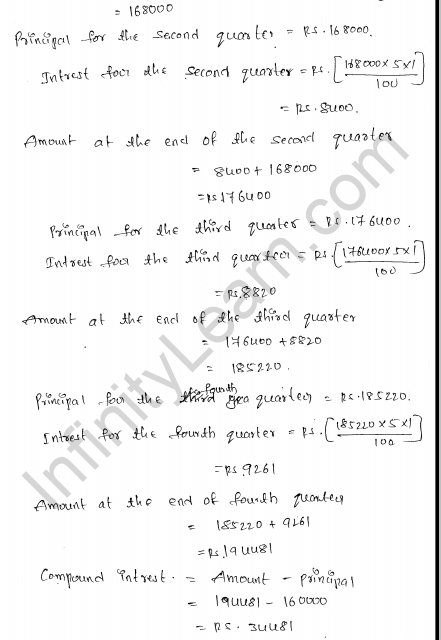 = 168000
Principal for the second quarter = Rs. 168000.
Intrest for the second quarter = Rs. [168000 x 5 x 1 / 100]
= Rs. 8400.
Amount at the end of the second quarter
= 8400 + 168000
= Rs 176400
Principal for the third quarter = Rs. 176400.
Intrest for the third quarter = Rs. [176400 x 5 x 1 / 100]
= Rs. 8820
Amount at the end of the third quarter
= 176400 + 8820
= 185220.
Principal for the fourth quarter = Rs. 185220.
Intrest for the fourth quarter = Rs. [185220 x 5 x 1 / 100]
= Rs. 9261
Amount at the end of fourth quarter
= 185220 + 9261
= Rs. 194481
Compound intrest. = Amount - principal
= 194481 - 160000
= Rs. 34481
InfinityLearn.com